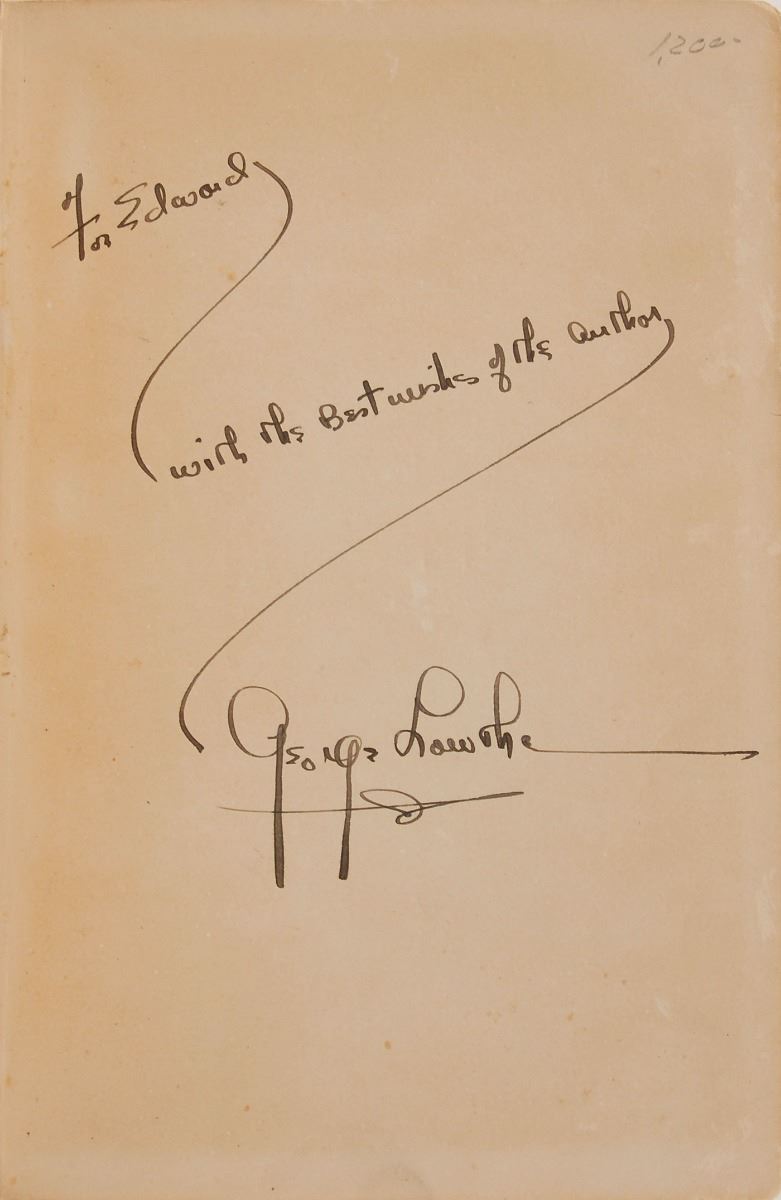 1,200-
For Edward
with the Best wishes of the author
George Lowthe